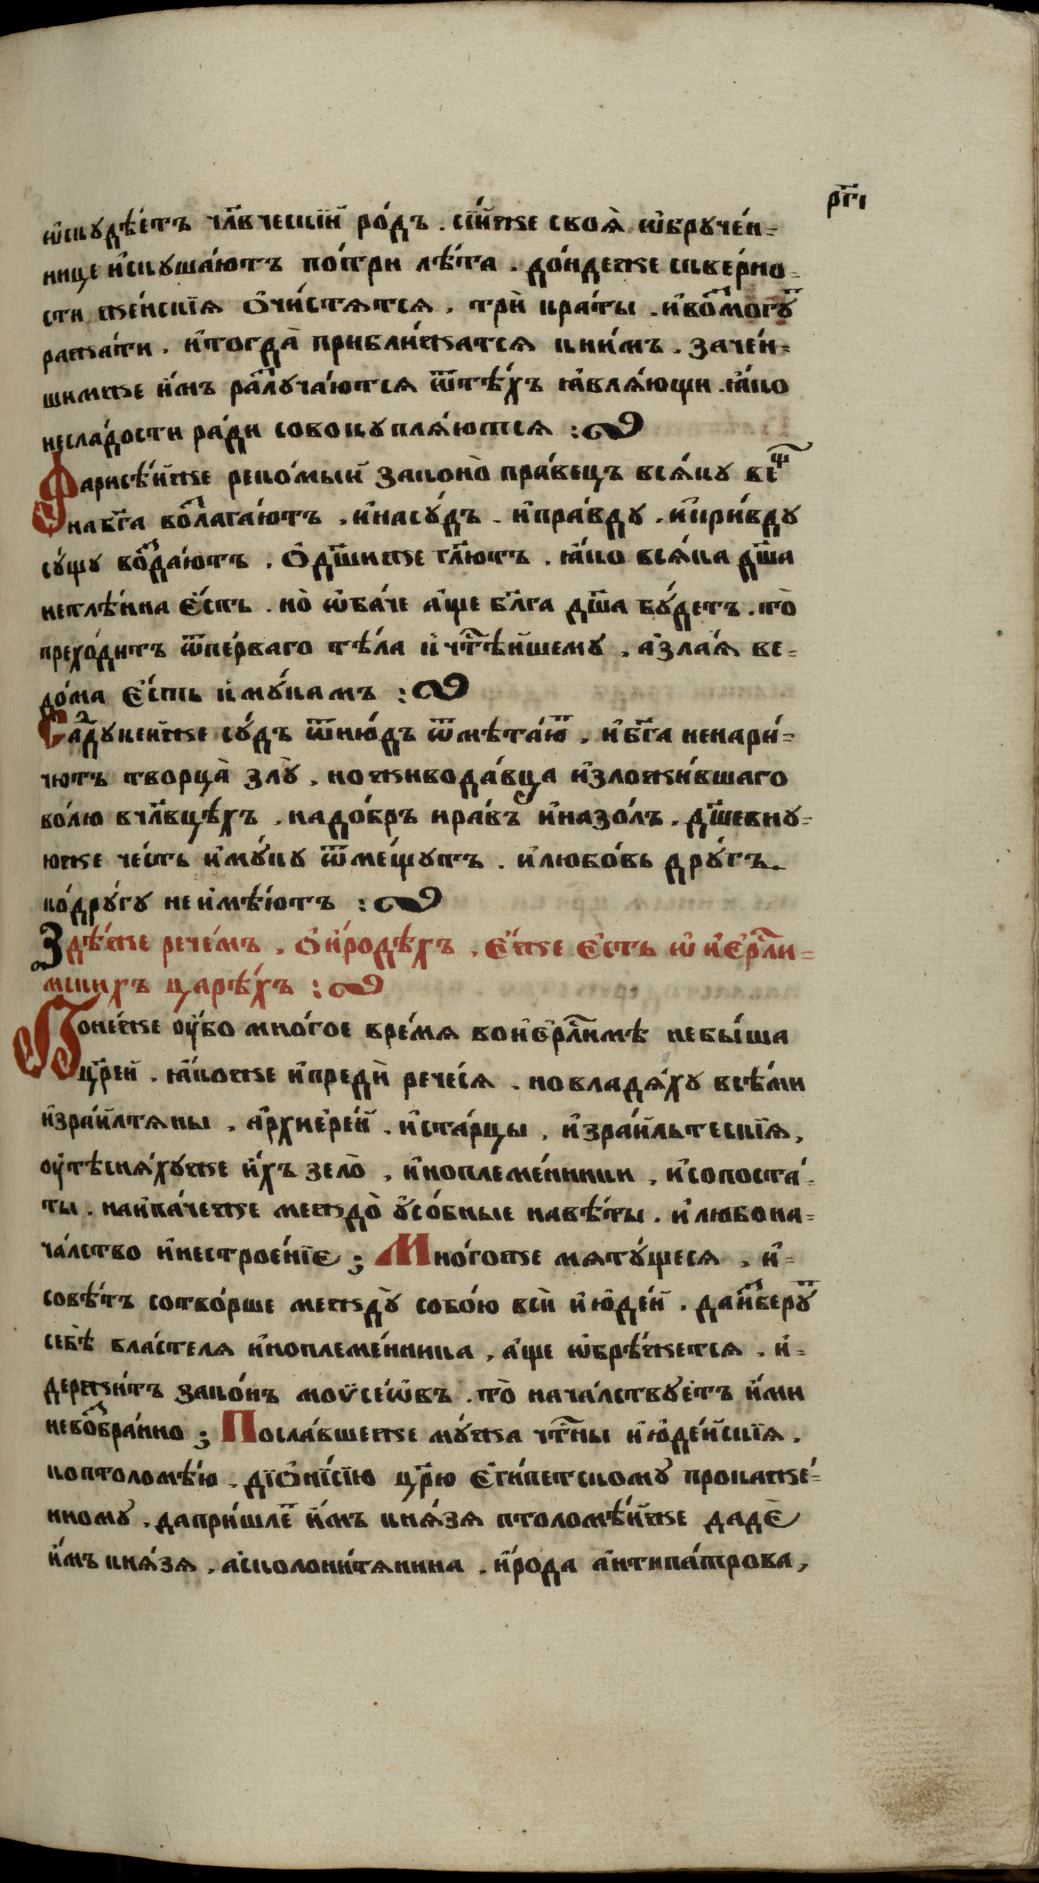 р҃гі
ѡ҆скудѣ́етъ чл҃вческїи ро́дъ . сїи́же своѧ̀ ѡ҆бруче́н=
нице и҆скуша́ютъ по́три лѣ́та . до́ндеже скве́рно=
сти же́нскїѧ ѻ҆чи́стѧтсѧ , трѝ кра́ты . и҆во́змогу́т
ража́ти . и҆тогда̀ прибли́жатсѧ кни́мъ . заче́н=
шимже и҆̀мъ разлуча́ютсѧ ѿтѣ́хъ ꙗ҆влѧ́ющи . ꙗ҆́ко
несла́дости ра́ди совокуплѧ́ютсѧ :
Фарисѣ́иже реко́мыи законо̀ пра́вецъ всѧ́ку ве́щ
на́бг҃а возлага́ютъ . и҆насу́дъ . и҆пра́вду . и҆кри́вду
су́щу возда́ютъ . ѻ҆дш҃иже гл҃ютъ . ꙗ҆́ко всѧ́ка дш҃а
нетлѣ́нна є҆́сть . но̀ ѡ҆ба́че а҆́ще бл҃га дш҃а бу́детъ . то̀
прехо́дитъ ѿпе́рваго тѣ́ла к чт҃нѣ́ишему . а҆зла́ѧ ве=
до́ма є҆́сть к му́камъ :
Садуке́иже су́дъ ѿню́дъ ѿмѣта́ют , и҆бг҃а ненари́=
чютъ творца̀ злу̀ , но живода́вца и҆зложи́вшаго
во́лю вчл҃вцѣ́хъ . надо́бръ нра́въ и҆назо́лъ . дш҃евну=
юже че́сть и҆му́ку ѿме́щутъ . и҆любо́вь дру́гъ
ко́другу не и҆мѣ́ютъ :
Здѣ́же рече́мъ . ѻ҆ и҆́родѣхъ , є҆́же є҆́сть ѡ҆ и҆є҆рⷭ҇ли=
мскихъ царѣ́хъ :
Поне́же оу҆́бо мно́гое вре́мѧ во и҆є҆рⷭ҇лимѣ не бы́ша
цр҃еи . ꙗ҆́коже и҆предѝ рече́сѧ . но владѧ́ху всѣ́ми
и҆зра́илтѧны , а҆рхиере́и . и҆ста́рцы , и҆зра́ильтескїѧ ,
оу҆тѣснѧ́хуже и҆́хъ зело̀ , и҆ноплеме́нники , и҆сопоста́=
ты . наипа́чеже между̀ усо́бные навѣ́ты . и҆любона=
ча́лство и҆нестрое́нїе ; Мно́гоже мѧту́щесѧ , и҆=
совѣ́тъ сотво́рше между̀ собо́ю вси̇ и҆юде́и . даи҆зберу́т
себѣ̀ вла́стелѧ и҆ноплеме́нника , а҆́ще ѡ҆брѣ́жетсѧ . и҆=
держи́тъ зако́нъ моѵсе́ѡвъ . то̀ нача́лствуетъ и҆́ми
невозбра́нно ; Посла́вшеже му́жа чт҃ны и҆юде́искїѧ .
ко птоломѣ́ю . дїѻни́сїю цр҃ю є҆ги́петскому прокаже́=
нному . дапри́шлет и҆́мъ кнѧ́зѧ птоломѣ́иже дадѐ
и҆́мъ кнѧ́зѧ , а҆сколони́тѧнина , и҆́рода а҆нтипа́трова ,